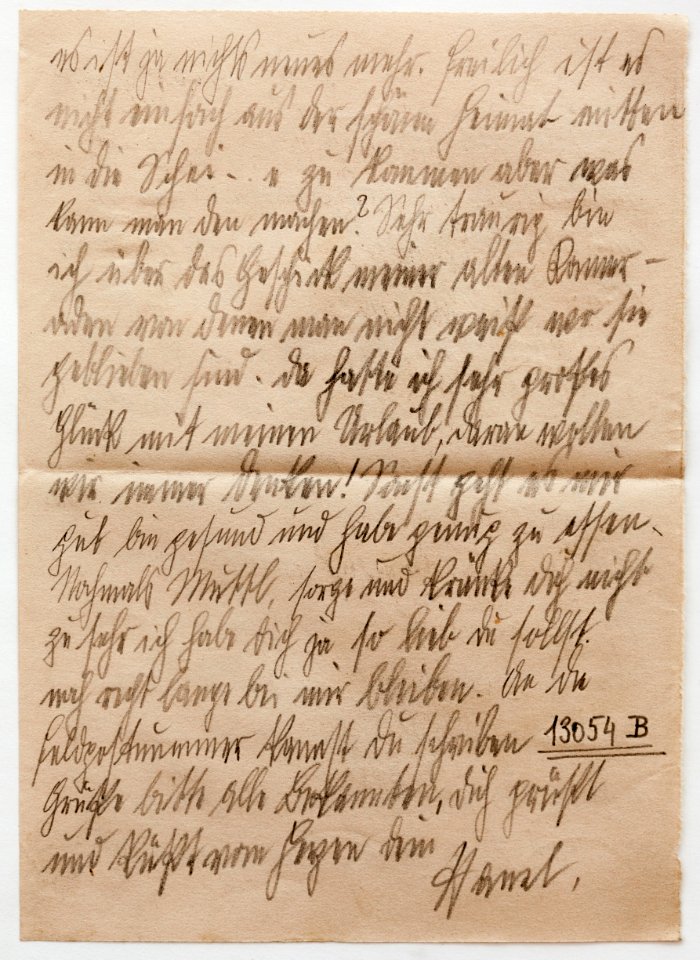 es ist ja nichts neues mehr. Freilich ist es
nicht einfach aus der schönen Heimat mitten
in die Schei- . e zu kommen aber was
kann man den machen? Sehr traurig bin
ich über das Geschick meiner alten Kamer-
aden von denen man nicht weiß wo sie
geblieben sind. Da hatte ich sehr großes
Glück mit meinen Urlaub, daran wollen
wir immer denken! Sonst geht es mir
gut bin gesund und habe genug zu essen.
Nochmals Muttl, sorge und kränke dich nicht
zu sehr ich habe dich ja so lieb du sollst
noch recht lange bei mir bleiben. An die
Feldpostnummer kannst du schreiben 13054 B
Grüße bitte alle Bekannten, dich grüßt
und küßt vom Herzen dein